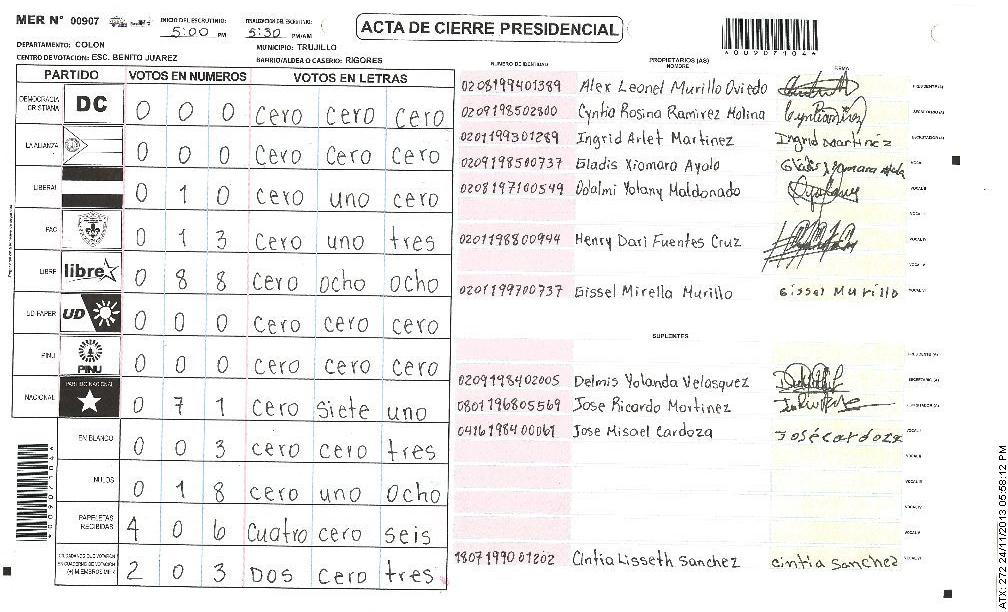 MER N° 00907 INICIO DEL ESCRUTINIO: 5:00 PM FINALIZACION DEL ESCRUTINIO: 5:30 PM/AM ACTA DE CIERRE PRESIDENCIAL
DEPARTAMENTO: COLON MUNICIPIO: TRUJILLO
CENTRO DE VOTACION: ESC. BENITO JUAREZ BARRIO/ALDEA O CASERIO: RIGORES
*00907104*
PARTIDO VOTOS EN NUMEROS VOTOS EN LETRAS
DEMOCRACIA CRISTIANA DC 0 0 0 Cero cero cero
LA ALIANZA 0 0 0 Cero Cero cero
LIBERAL 0 1 0 Cero uno cero
PAC 0 1 3 Cero uno tres
LIBRE libre 0 8 8 Cero ocho ocho
UD FAPER UD 0 0 0 Cero cero cero
PINU PINU 0 0 0 Cero cero cero
NACIONAL PARTIDO NACIONAL 0 7 1 Cero siete uno
EN BLANCO 0 0 3 Cero cero tres
NULOS 0 1 8 cero uno ocho
PAPELETAS RECIBIDAS 4 0 6 Cuatro cero seis
CIUDADANOS QUE VOTARON EN CUADERNO DE VOTACION (+) MIEMBROS MER 2 0 3 Dos cero tres
*00907104*
NUMERO DE IDENTIDAD PROPIETARIOS (AS) NOMBRE FIRMA
0208199401389 Alex Leonel Murillo Oviedo PRESIDENTE(A)
0209198502800 Cyntia Rosina Ramirez Molina SECRETARIO(A)
0201199301289 Ingrid Arlet Martinez Ingrid Martinez ESCRUTADOR(A)
0209198500737 Gladis Xiomara Ayala
0208197100549 Odalmi Yolany Maldonado
0201198800944 Henry Dari Fuentes Cruz
0201199700737 Gissel Mirella Murillo Gissel Murillo
SUPLENTES
PRESIDENTE (A)
0209198402005 Delmis Yolanda Velasquez SECRETARIO (A)
0801196805569 Jose Ricardo Martinez ESCRUTADOR(A)
0416198400061 Jose Misael Cardoza José Cardoza
1807199001202 Cintia Lisseth Sanchez cintia Sanchez
ATX: 272 24/11/2013 05:58:12 PM